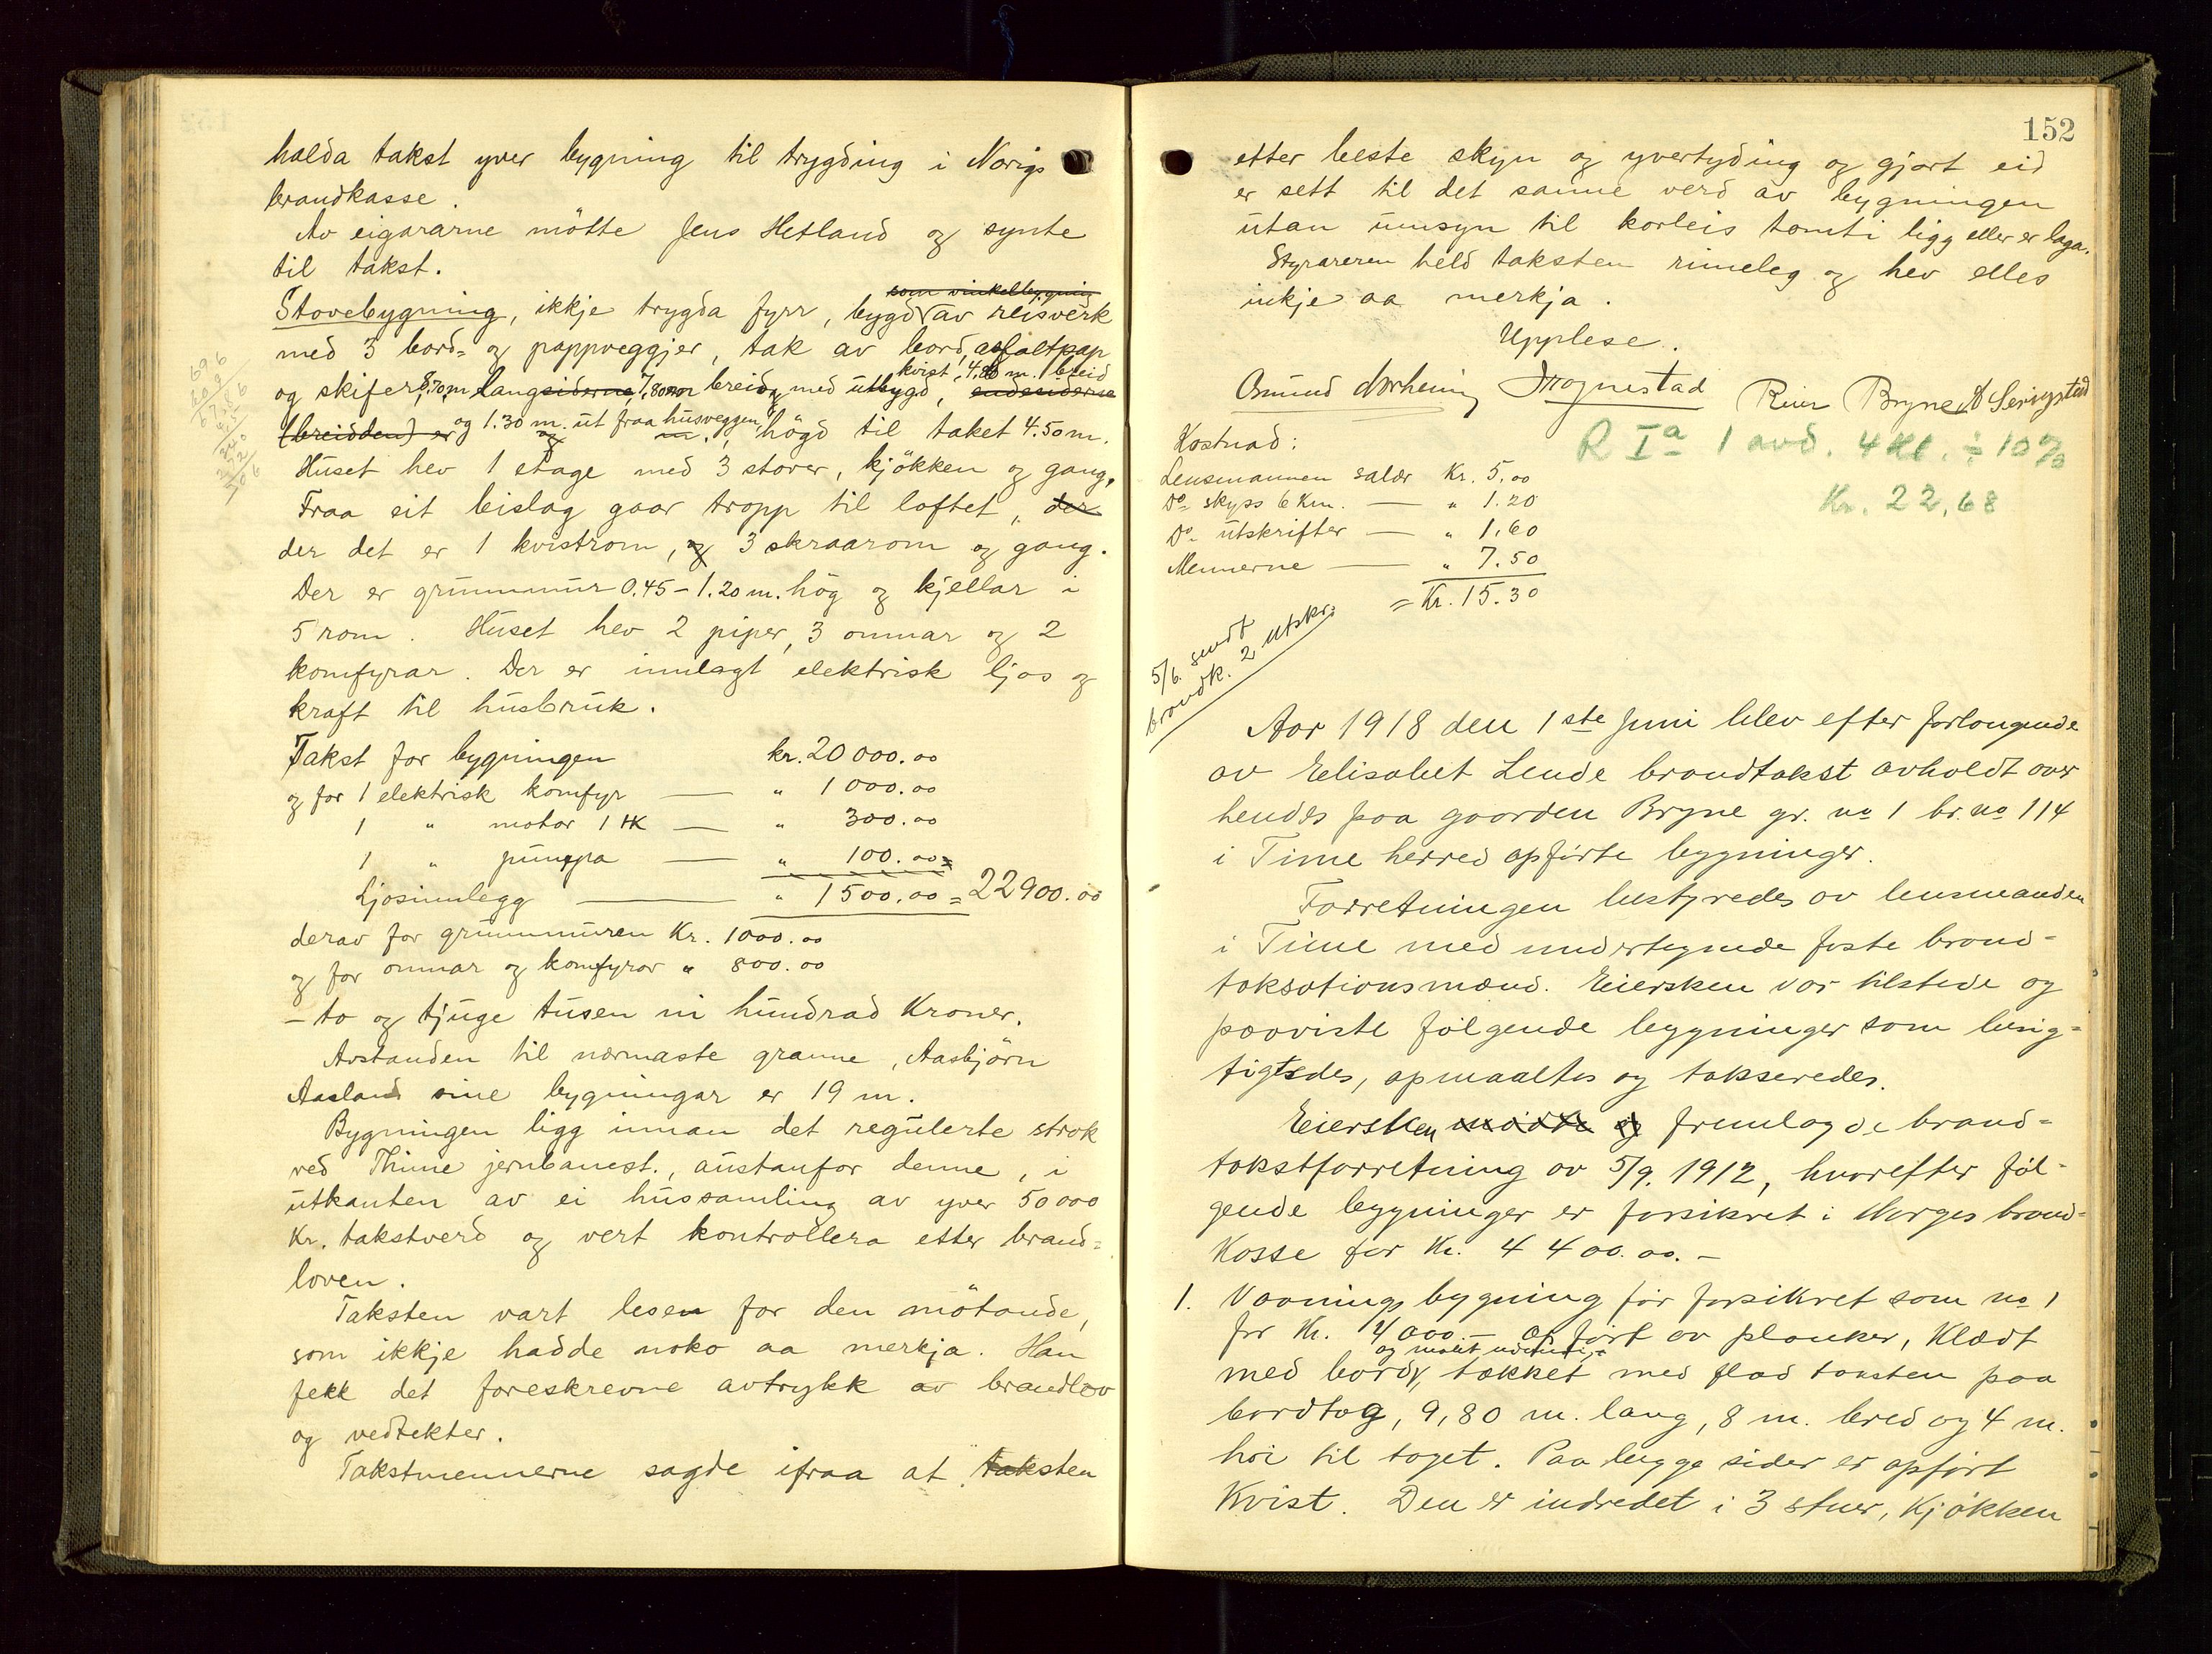 halda takst yver bygning til trygding i Norigs
brandkasse.
Av eigararne mötte Jens Hetland og synte
til takst.
som vinkelbygning
Stovebygning, ikkje trygda fyrr, bygd av reisverk
med 3 bord- og pappveggjer, tak av bord, asfaltpap
kvist, 4.80 m. breid
og skifer, 8.70 m langsiderne 7,80 m breid, med utbygd, endesiderne
(breidden) er og 1.30 m. ut fraa husveggen, högd til taket 4.50 m.
Huset hev 1 etage med 3 stover, kjökken og gang,
Fraa eit bislag gaar tropp til loftet, der
der det er 1 kvistrom, og 3 skraarom og gang.
Der er grunnmur 0.45 - 1.20 m. hög og kjellar i
5 rom. Huset hev 2 piper, 3 omnar og 2
komfyrar. Der er innlagt elektrisk ljos og
kraft til husbruk.
Takst for bygningen kr. 20 000.00
og for 1 elektrisk komfyr — " 1 000.00
1 " motor 1 HK — " 300.00
1 " pumpa — " 100.00
Ljosinnlegg — " 1 500.00 = 22 900.00
derav for grunnmuren Kr. 1000.00
og for omnar og komfyrar " 800.00
- to og tjuge tusen ni hundrad Kroner.
Avstanden til nærmaste granne, Aasbjörn
Aasland sine bygningar er 19 m.
Bygningen ligg innan det regulerte strok
ved Thime jernbanest., austanfor denne, i
utkanten av ei hussamling av yver 50 000
Kr. takstverd og vert kontrollera etter brand-
loven.
Taksten vart lesen for den mötande,
som ikkje hadde noko aa merkja. Han
fekk det foreskrevne avtrykk av brandlov
og vedtekter.
Takstmennerne sagde ifraa at taksten
152
etter beste skyn og yvertyding og gjort eid
er sett til det sanne verd av bygningen
utan umsyn til korleis tomti ligg eller er laga.
Styraren held taksten rimeleg og hev elles
inkje aa merkja.
Upplese.
Osmund Norheim Trognestad Reier Bryne A Serigstad
Kostnad:
Lensmannen salær Kr. 5,00
Do skyss 6 Km. — " 1.20
Do utskrifter — " 1,60
Mennerne — " 7.50
= Kr. 15.30
R Ia 1 avd. 4 kl. ÷ 10%
Kr. 22,68
5/6. sendt
brandk. 2 utskr.
Aar 1918 den 1ste Juni blev efter forlangende
av Elisabet Lende brandtakst avholdt over
hendes paa gaarden Bryne gr. no 1 br. no 114
i Time herred opförte bygninger.
Forretningen bestyredes av lensmanden
i Time med undertegnede faste brand-
taksationsmænd. Eiersken var tilstede og
paaviste fölgende bygninger som besig-
tigtsdes, opmaaltes og takseredes.
Eiersken mödte og fremlagde brand-
takstforretning av 5/9. 1912, hvorefter föl-
gende bygninger er forsikret i Norges brand-
kasse for Kr. 4 400.00. -
1. Vaaningsbygning för forsikret som no 1
for Kr. 4000. - opfört av planker, klædt
og malet udvendig
med bord, tækket med flad taksten paa
bordtag, 9,80 m. lang, 8 m. bred og 4 m.
höi til taget. Paa begge sider er opfört
Kvist. Den er indredet i 3 stuer, kjökken